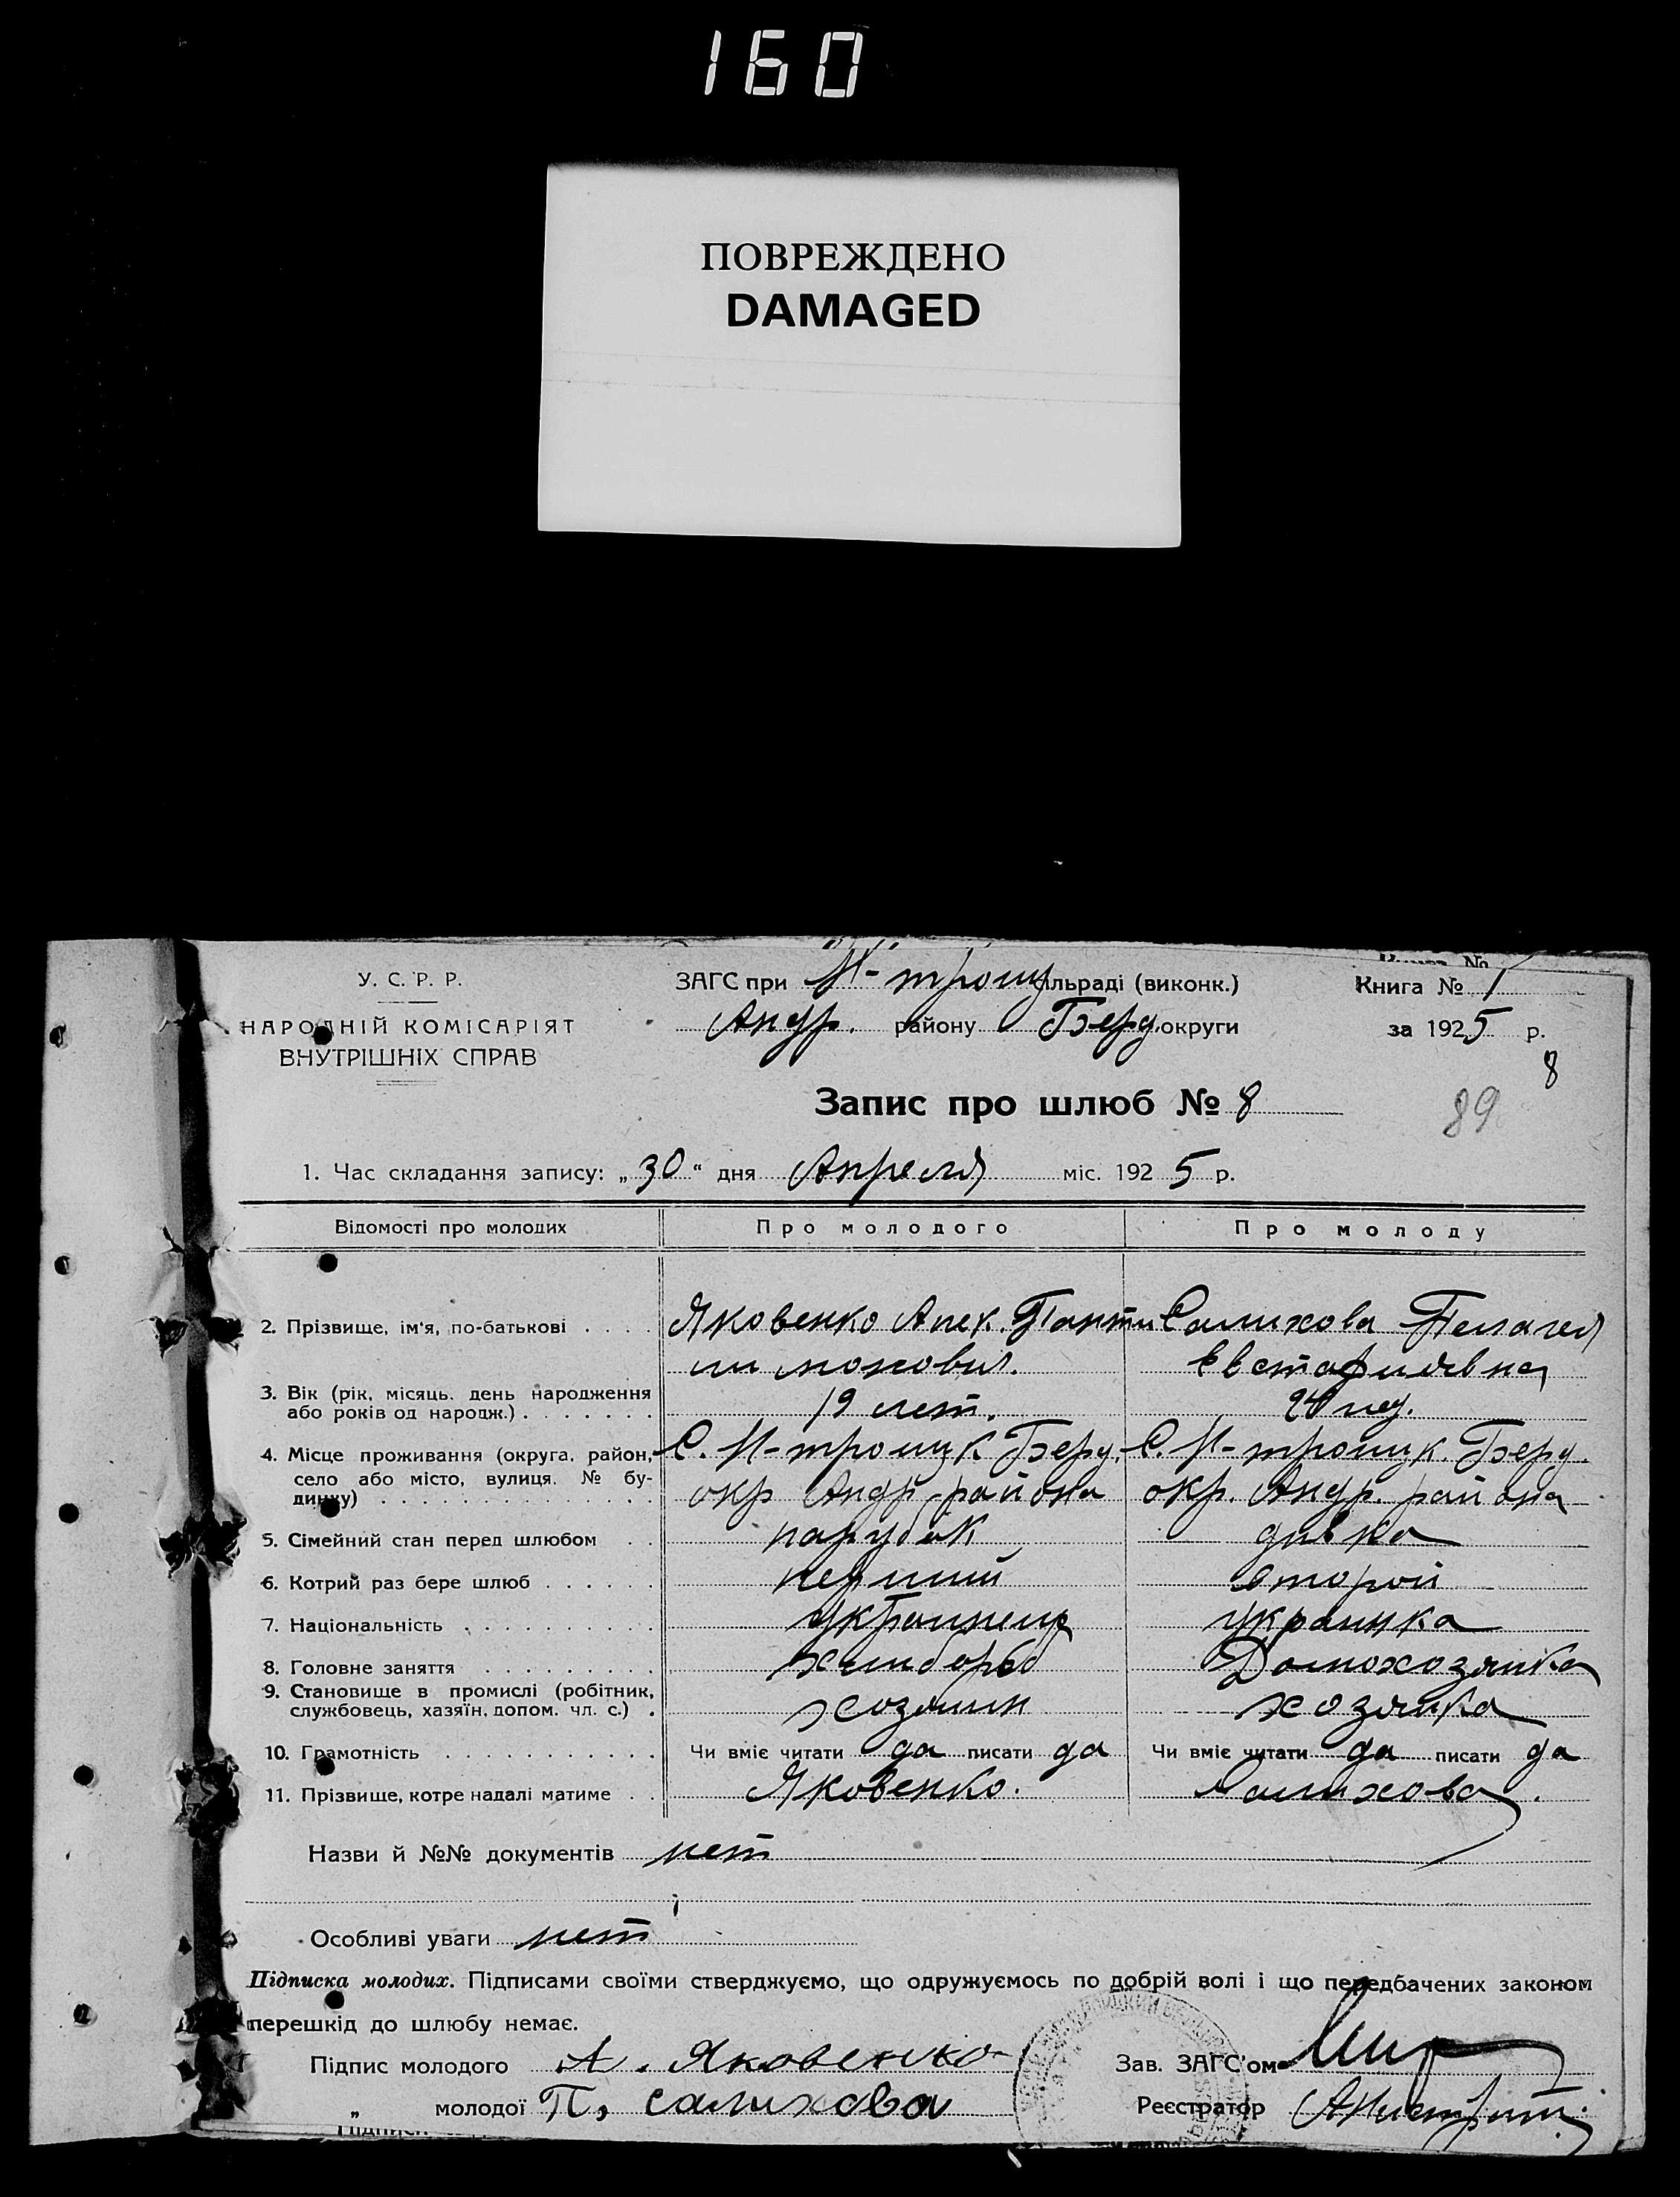 160
ПОВРЕЖДЕНО
DAMAGED
У. С. Р. Р.
НАРОДНІЙ КОМІСАРІЯТ
ВНУТРІШНІХ СПРАВ
ЗАГС при Н-троиц ільраді (виконк.)
Андр. району Берд. округи
Книга № 1
за 1925 р.
8
89
Запис про шлюб № 8
1. Час складання запису: „30“ дня Апреля міс. 1925 р.
Відомості про молодих Про молодого Про молоду
2. Прізвище, ім'я, по-батькові . . . . Яковенко Алек. Панти Салихова Пелагея
лимонович. Евстафиевна
3. Вік (рік, місяць, день народження
або років од народж.) . . . . . . . 19 лет.
4. Місце проживання (округа, район, С. Н-троицк Берд. С. Н-троицк. Берд.
село або місто, вулиця, № бу-
динку) . . . . . . . . . . . . . окр Андр района окр. Андр. района
5. Сімейний стан перед шлюбом . . парубок дивка
6. Котрий раз бере шлюб . . . . . . первий второй
7. Національність . . . . . . . . . . украинец украинка
8. Головне заняття . . . . . . . . . хлибороб Домохозяйка
9. Становище в промислі (робітник,
службовець, хазяїн, допом. чл. с.) . хозяин хозяйка
10. Грамотність . . . . . . . . . . . Чи вміє читати да писати да Чи вміє читати да писати да
11. Прізвище, котре надалі матиме . . Яковенко. Салихова.
Назви й №№ документів нет
Особливі уваги нет
Підписка молодих. Підписами своїми стверджуємо, що одружуємось по добрій волі і що передбачених законом
перешкід до шлюбу немає.
Підпис молодого А. Яковенко Зав. ЗАГС'ом
„ молодої П. Салихова Реєстратор